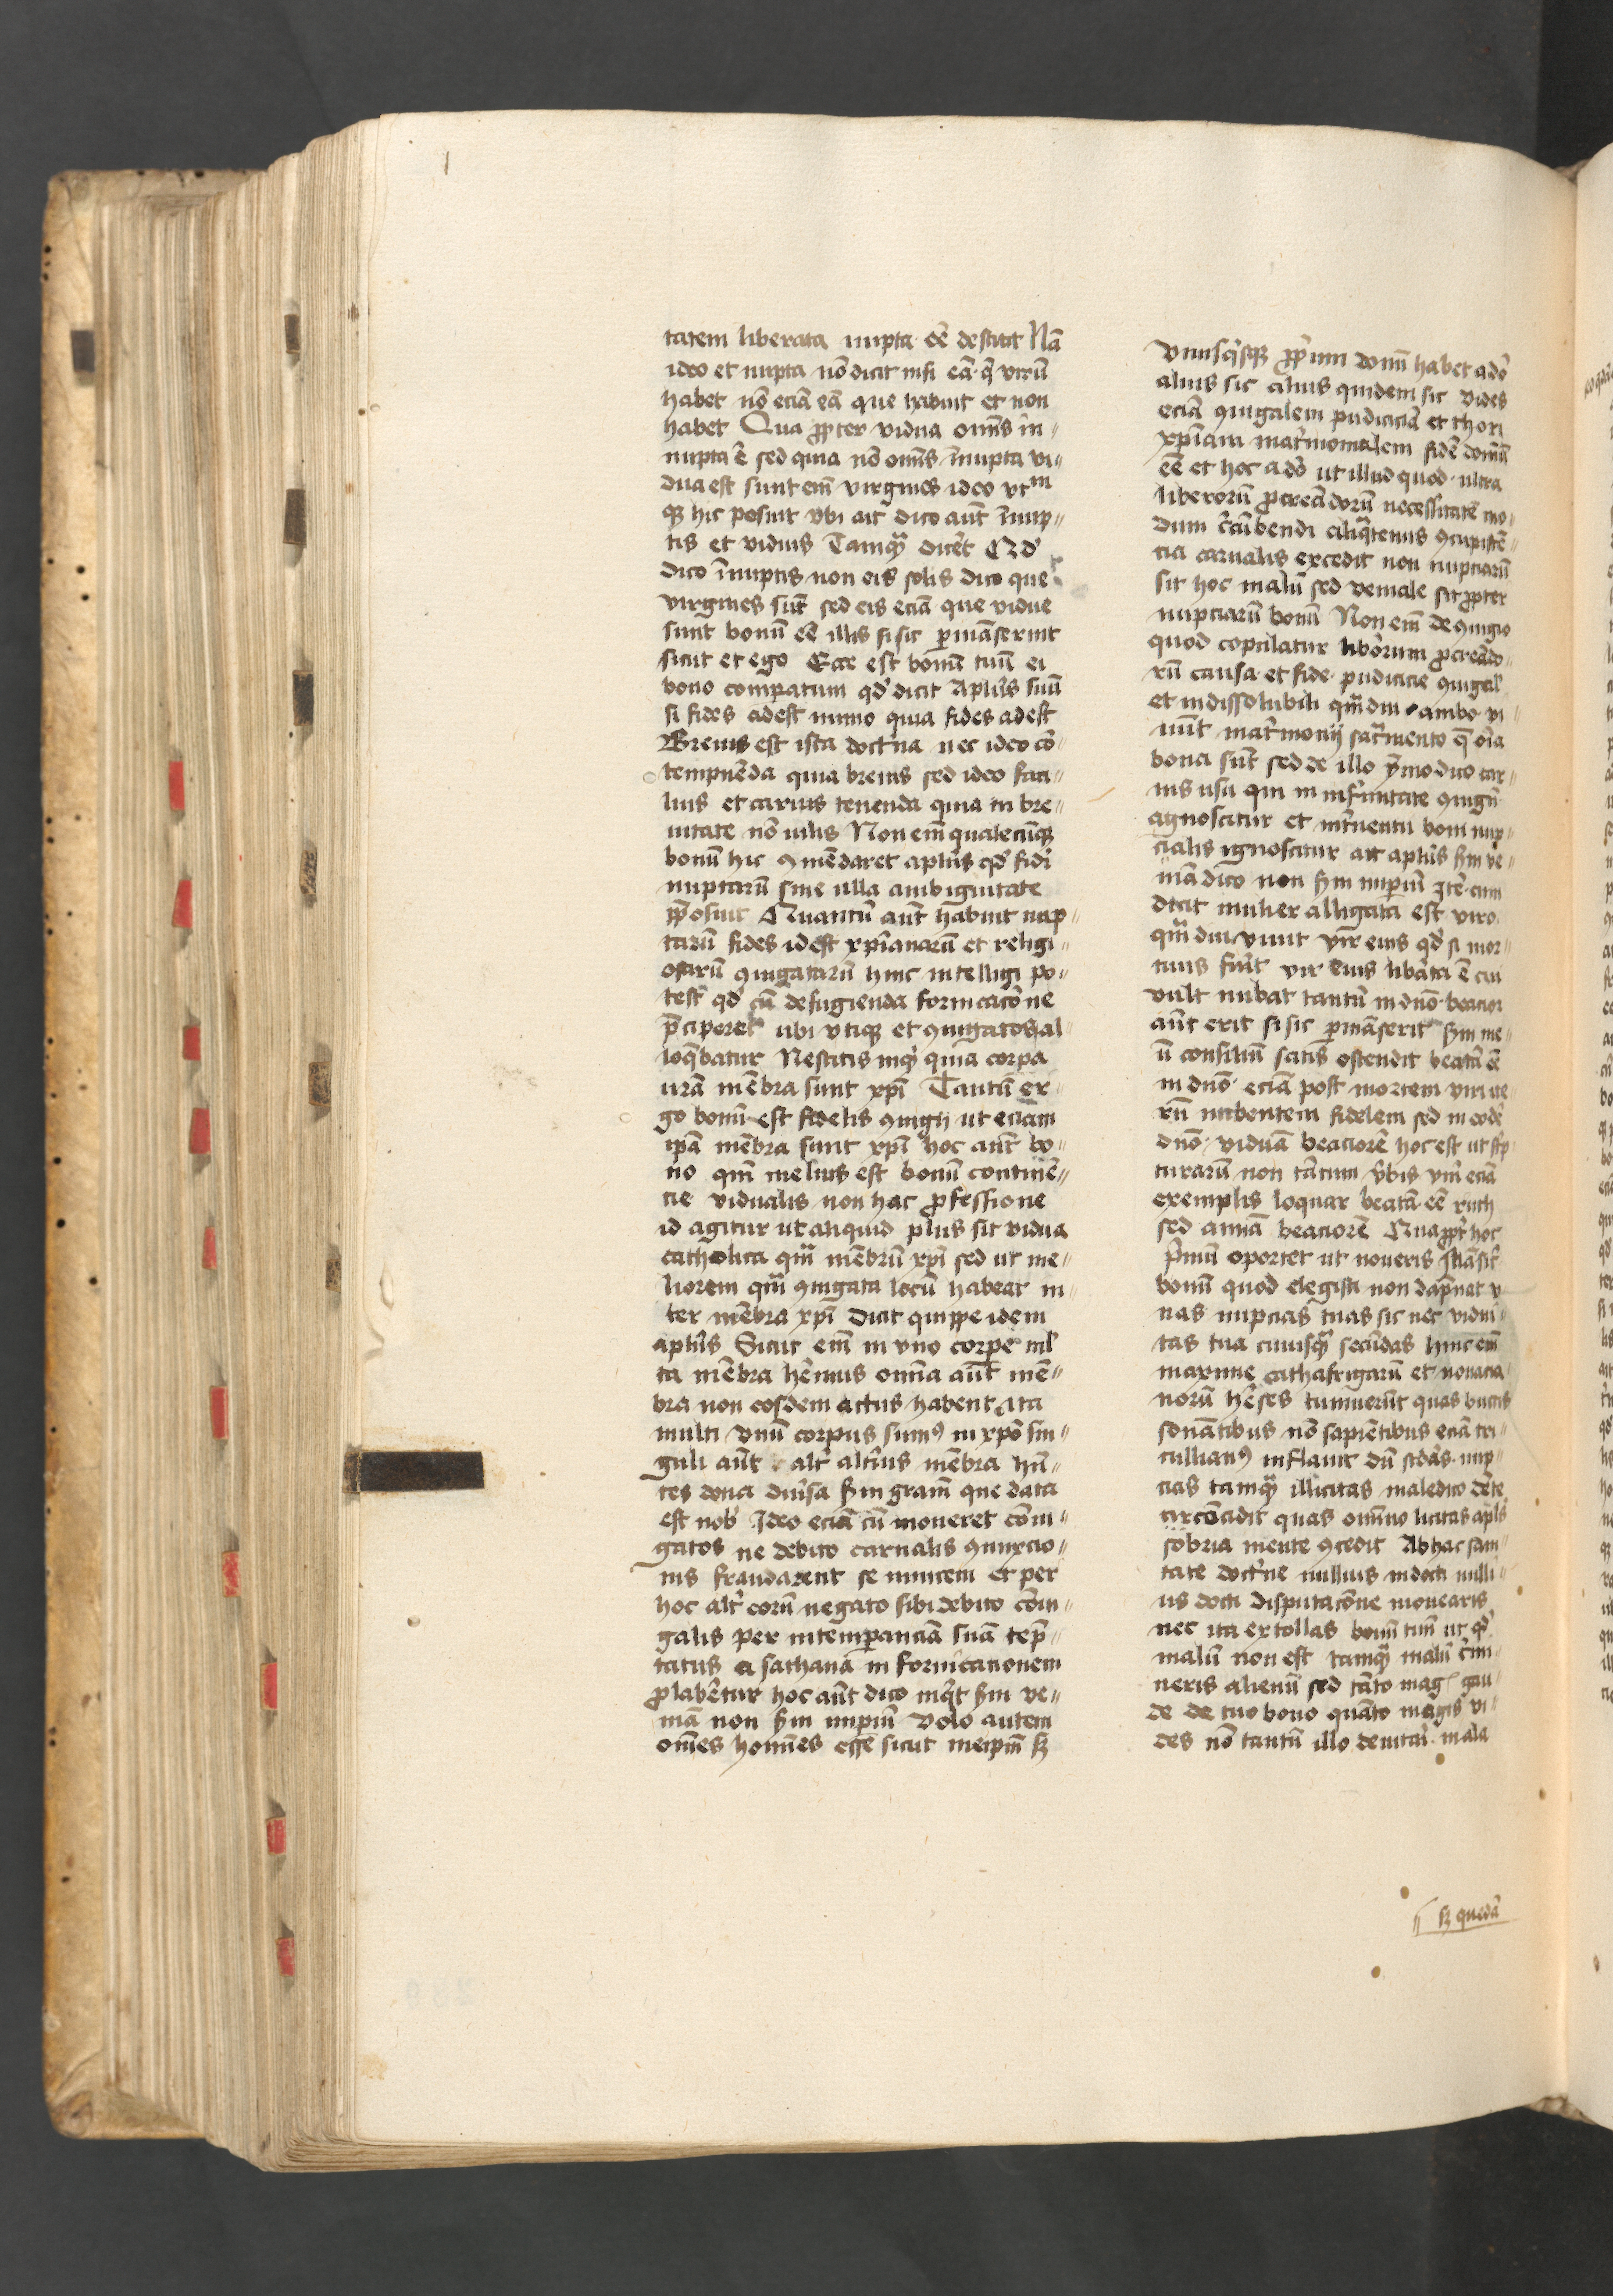 tatem liberata nupta eē destitit Nā
ideo et nupta nō dicit nisi eā q̄ virū
habet nō eciā eā que habuit et non
habet Qua ꝓpter vidua om̄is in〃
nupta ē sed quia nō om̄is īnupta vi〃
dua est sunt em̄ virgines ideo vtᵐ
qꝫ hic posuit vbi ait dico aūt īnup〃
tis et viduis Tamqᷓ dicēt Qd̕
dico īnuptis non eis solis dico que
virgines sūt sed eis eciā que vidue
sunt bonū eē illis si sic permāserint
sicut et ego Ecce est bonū tuū ei
bono comparatum qd̕ dicit Apl̄us suū
si fides adest ymmo quia fides adest
Breuis est ista doctͥna nec ideo cō〃
tempnēda quia breuis sed ideo faci〃
lius et carius tenenda quia in bre〃
uitate nō vilis Non em̄ qualecūqꝫ
bonū hic ꝯmēdaret apl̄us qd̕ fidei
nuptarū sine ulla ambiguitate
p̄posuit Quantū aūt habuit nup〃
tarū fides id est xp̄ianarū et religi〃
osarū ꝯiugatarū hinc intelligi po〃
test qd̕ cū de fugienda fornicacōne
p̄ciperet ubi vtiqꝫ et ꝯiugatos al〃
loq̄batur Nescitis inqͥt quia corpa
urā mēbra sunt xp̄i Tantū er〃
go bonū est fidelis ꝯiugij ut eciam
ip̄a mēbra sunt xp̄i hoc aūt bo〃
no qm̄ melius est bonū continē〃
cie vidualis non hac ꝓfessione
id agitur ut aliquid plus sit vidua
catholica qᷓm mēbrū xp̄i sed ut me〃
liorem qᷓm ꝯiugata locū habeat in〃
ter mēbra xp̄i Dicit quippe idem
apl̄us Sicut em̄ in vno corpe ml̕
ta mēbra hēmus omīa aūt mē〃
bra non eosdem actus habent ita
multi vnū corpus sumꝰ in xp̄o sin〃
guli aūt alt̕ alt̕ius mēbra hn̄〃
tes dona diu̕sa scd̄m graīm que data
est nob̕ Ideo eciā cū moneret cōiu〃
gatos ne debito carnalis ꝯiunxcio〃
nis fraudarent se inuicem et per
hoc alt̕ eorū negato sibi debito cōiu〃
galis per intemperanciā suā tēp〃
tatus a sathana in fornicacionem
ꝓlabētur hoc aūt dico inqͥt scd̄m ve〃
niā non scd̄m imperiū Volo autem
om̄es homīes esse sicut meip̄m sꝫ
Vnusqͥsqꝫ ꝓpͥum donū habet a dō
alius sic alius quidem sic Vides
eciā ꝯiugalem pudiciciā et thori
xp̄iani mat̕monialem fidē donū
eē et hoc a dō ut illud quod ultra
liberorū ꝓcreādorū necessitatē mo〃
dum ꝯcūbendi aliqᷓtenus ꝯcupiscē〃
cia carnalis excedit non nupciarū
sit hoc malū sed veniale sit ꝓpter
nupciarū bonū Non em̄ de ꝯiugio
quod copulatur lib̕orum ꝓcreādo〃
rū causa et fide pudicicie ꝯiugal̕
et indissolubili qᷓmdiu ambo vi〃
uūt mat̕monij sac̕mento q̄ oīa
bona sūt sed de illo ym̄modico car〃
nis usu qui in infirmitate ꝯiugū
agnoscitur et int̕uentu boni nup〃
cialis ignoscitur ait apl̄us scd̄m ve〃
niā dico non scd̄m imperiū Itē cum
dicit mulier alligata est viro
qᷓmdiu viuit vir eius qd̕ si mor〃
tuus fu̕it vir eius lib̕ata ē cui
vult nubat tantū in dn̄o beacior
aūt erit si sic permāserit scd̄m me〃
ū consiliū satis ostendit beatā eē
in dn̄o eciā post mortem viri ite〃
rū nubentem fidelem sed in eodē
dn̄o viduā beaciorē hoc est ut sc̕p
turarū non tātum v̕bis v̄m eciā
exemplis loquar beatā eē ruth
sed annā beaciorē Quaꝓpt̕ hoc
p̕mū oportet ut noueris
bonū quod elegisti non dāpnat̕ p̕
nas nupcias tuas sic nec vidui〃
tas tua cuiusqᷓ secūdas hinc em̄
maxime cathafrigarū et nouacia〃
norū h̕eses tumuerūt quas buccis
sonātibus nō sapiētibus eciā ter〃
tullianꝰ inflauit dū scd̕as nup〃
cias tamqᷓ illicitas maledico dēte
circōcidit quas om̄ino licitas apl̕s
sobria mente ꝯcedit Ab hac sani〃
tate doct̕ne nullius indocti nulli〃
us docti disputacōne mouearis
nec ita extollas bonū tuū ut qd̕
malū non est tamqᷓ malū c̕imi〃
neris alienū sed tāto magꝭ gau〃
de de tuo bono quāto magis vi〃
des nō tantū illo deuitari mala
〃 sꝫ quedā